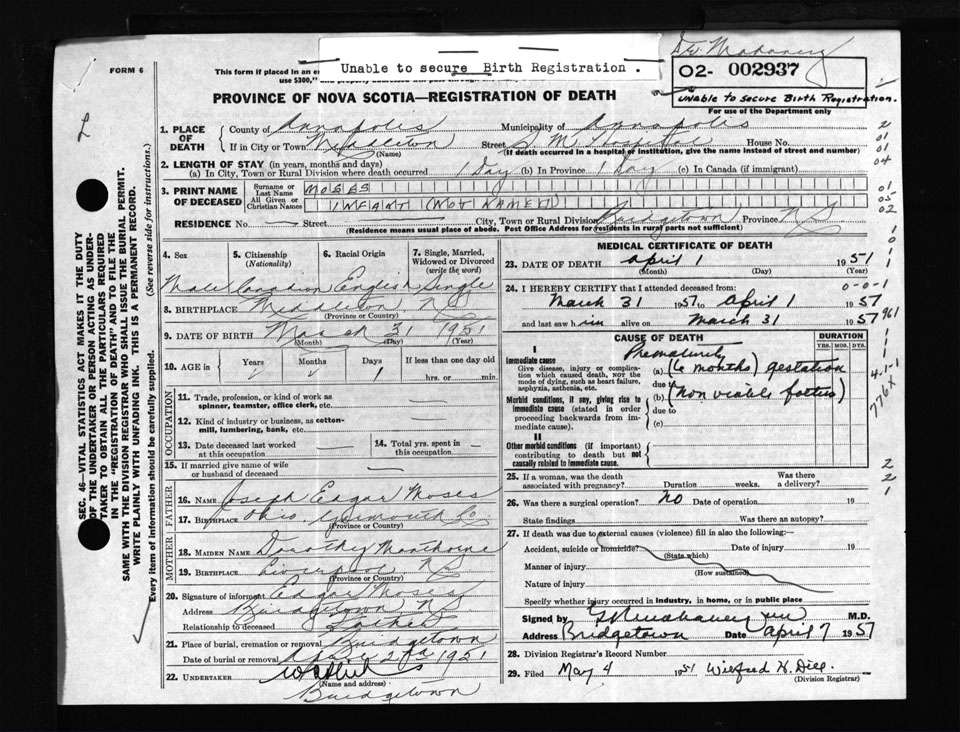 FORM 6
Unable to secure Birth Registration.
02- 002937
unable to secure Birth Registration.
For use of the Department only
This form if placed in an
use $300,
PROVINCE OF NOVA SCOTIA—REGISTRATION OF DEATH
1. PLACE OF DEATH
County of Annapolis Municipality of Annapolis
If in City or Town Middleton Street S. M. Hospital House No.
(Name) (If death occurred in a hospital or institution, give the name instead of street and number)
2. LENGTH OF STAY (in years, months and days)
(a) In City, Town or Rural Division where death occurred 1 Day (b) In Province 1 Day (c) In Canada (if immigrant)
3. PRINT NAME OF DECEASED
Surname or Last Name MOSES
All Given or Christian Names INFANT (NOT NAMED)
RESIDENCE No. — Street City, Town or Rural Division Bridgetown Province N.S.
(Residence means usual place of abode. Post Office Address for residents in rural parts not sufficient)
4. Sex
5. Citizenship (Nationality)
6. Racial Origin
7. Single, Married, Widowed or Divorced (write the word)
Male Canadian English Single
8. BIRTHPLACE Middleton N.S.
(Province or Country)
9. DATE OF BIRTH March 31 1951
(Month) (Day) (Year)
10. AGE in Years Months Days If less than one day old
1 hrs. or min.
OCCUPATION
11. Trade, profession, or kind of work as spinner, teamster, office clerk, etc. —
12. Kind of industry or business, as cotton-mill, lumbering, bank, etc. —
13. Date deceased last worked at this occupation —
14. Total yrs. spent in this occupation —
15. If married give name of wife or husband of deceased —
FATHER
16. NAME Joseph Edgar Moses
17. BIRTHPLACE Ohio, Yarmouth Co
(Province or Country)
MOTHER
18. MAIDEN NAME Dorothy
19. BIRTHPLACE Liverpool N.S.
(Province or Country)
20. Signature of informant Edgar Moses
Address Bridgetown N.S.
Relationship to deceased Father
21. Place of burial, cremation or removal Bridgetown
Date of burial or removal April 2nd 1951
22. UNDERTAKER
(Name and address)
Bridgetown
MEDICAL CERTIFICATE OF DEATH
23. DATE OF DEATH April 1 1951
(Month) (Day) (Year)
24. I HEREBY CERTIFY that I attended deceased from:
0-0-1
March 31 1951 to April 1 1951
and last saw him alive on March 31 1951
CAUSE OF DEATH
DURATION
YRS. MOS. DYS.
I
Immediate cause
Give disease, injury or complication which caused death, NOT the mode of dying, such as heart failure, asphyxia, asthenia, etc.
Prematurity
(a) (6 months) gestation
due to
Morbid conditions, if any, giving rise to immediate cause (stated in order proceeding backwards from immediate cause).
(b) (non viable foetus)
due to
(c)
II
Other morbid conditions (if important) contributing to death but not causally related to immediate cause.
961
4.1-1
776X
25. If a woman, was the death associated with pregnancy? Duration weeks. Was there a delivery?
26. Was there a surgical operation? No Date of operation 19
State findings Was there an autopsy?
27. If death was due to external causes (violence) fill in also the following:
Accident, suicide or homicide? Date of injury 19
(State which)
Manner of injury
(How sustained)
Nature of injury
Specify whether injury occurred in industry, in home, or in public place
Signed by M.D.
Address Bridgetown Date April 7 1951
28. Division Registrar's Record Number
29. Filed May 4 1951 Wilfred H. Dill.
(Division Registrar)
SEC. 46—VITAL STATISTICS ACT MAKES IT THE DUTY
OF THE UNDERTAKER OR PERSON ACTING AS UNDER-
TAKER TO OBTAIN ALL THE PARTICULARS REQUIRED
IN THE "REGISTRATION OF DEATH" AND TO FILE THE
SAME WITH THE DIVISION REGISTRAR WHO SHALL ISSUE THE BURIAL PERMIT.
WRITE PLAINLY WITH UNFADING INK. THIS IS A PERMANENT RECORD.
Every item of information should be carefully supplied. (See reverse side for instructions.)